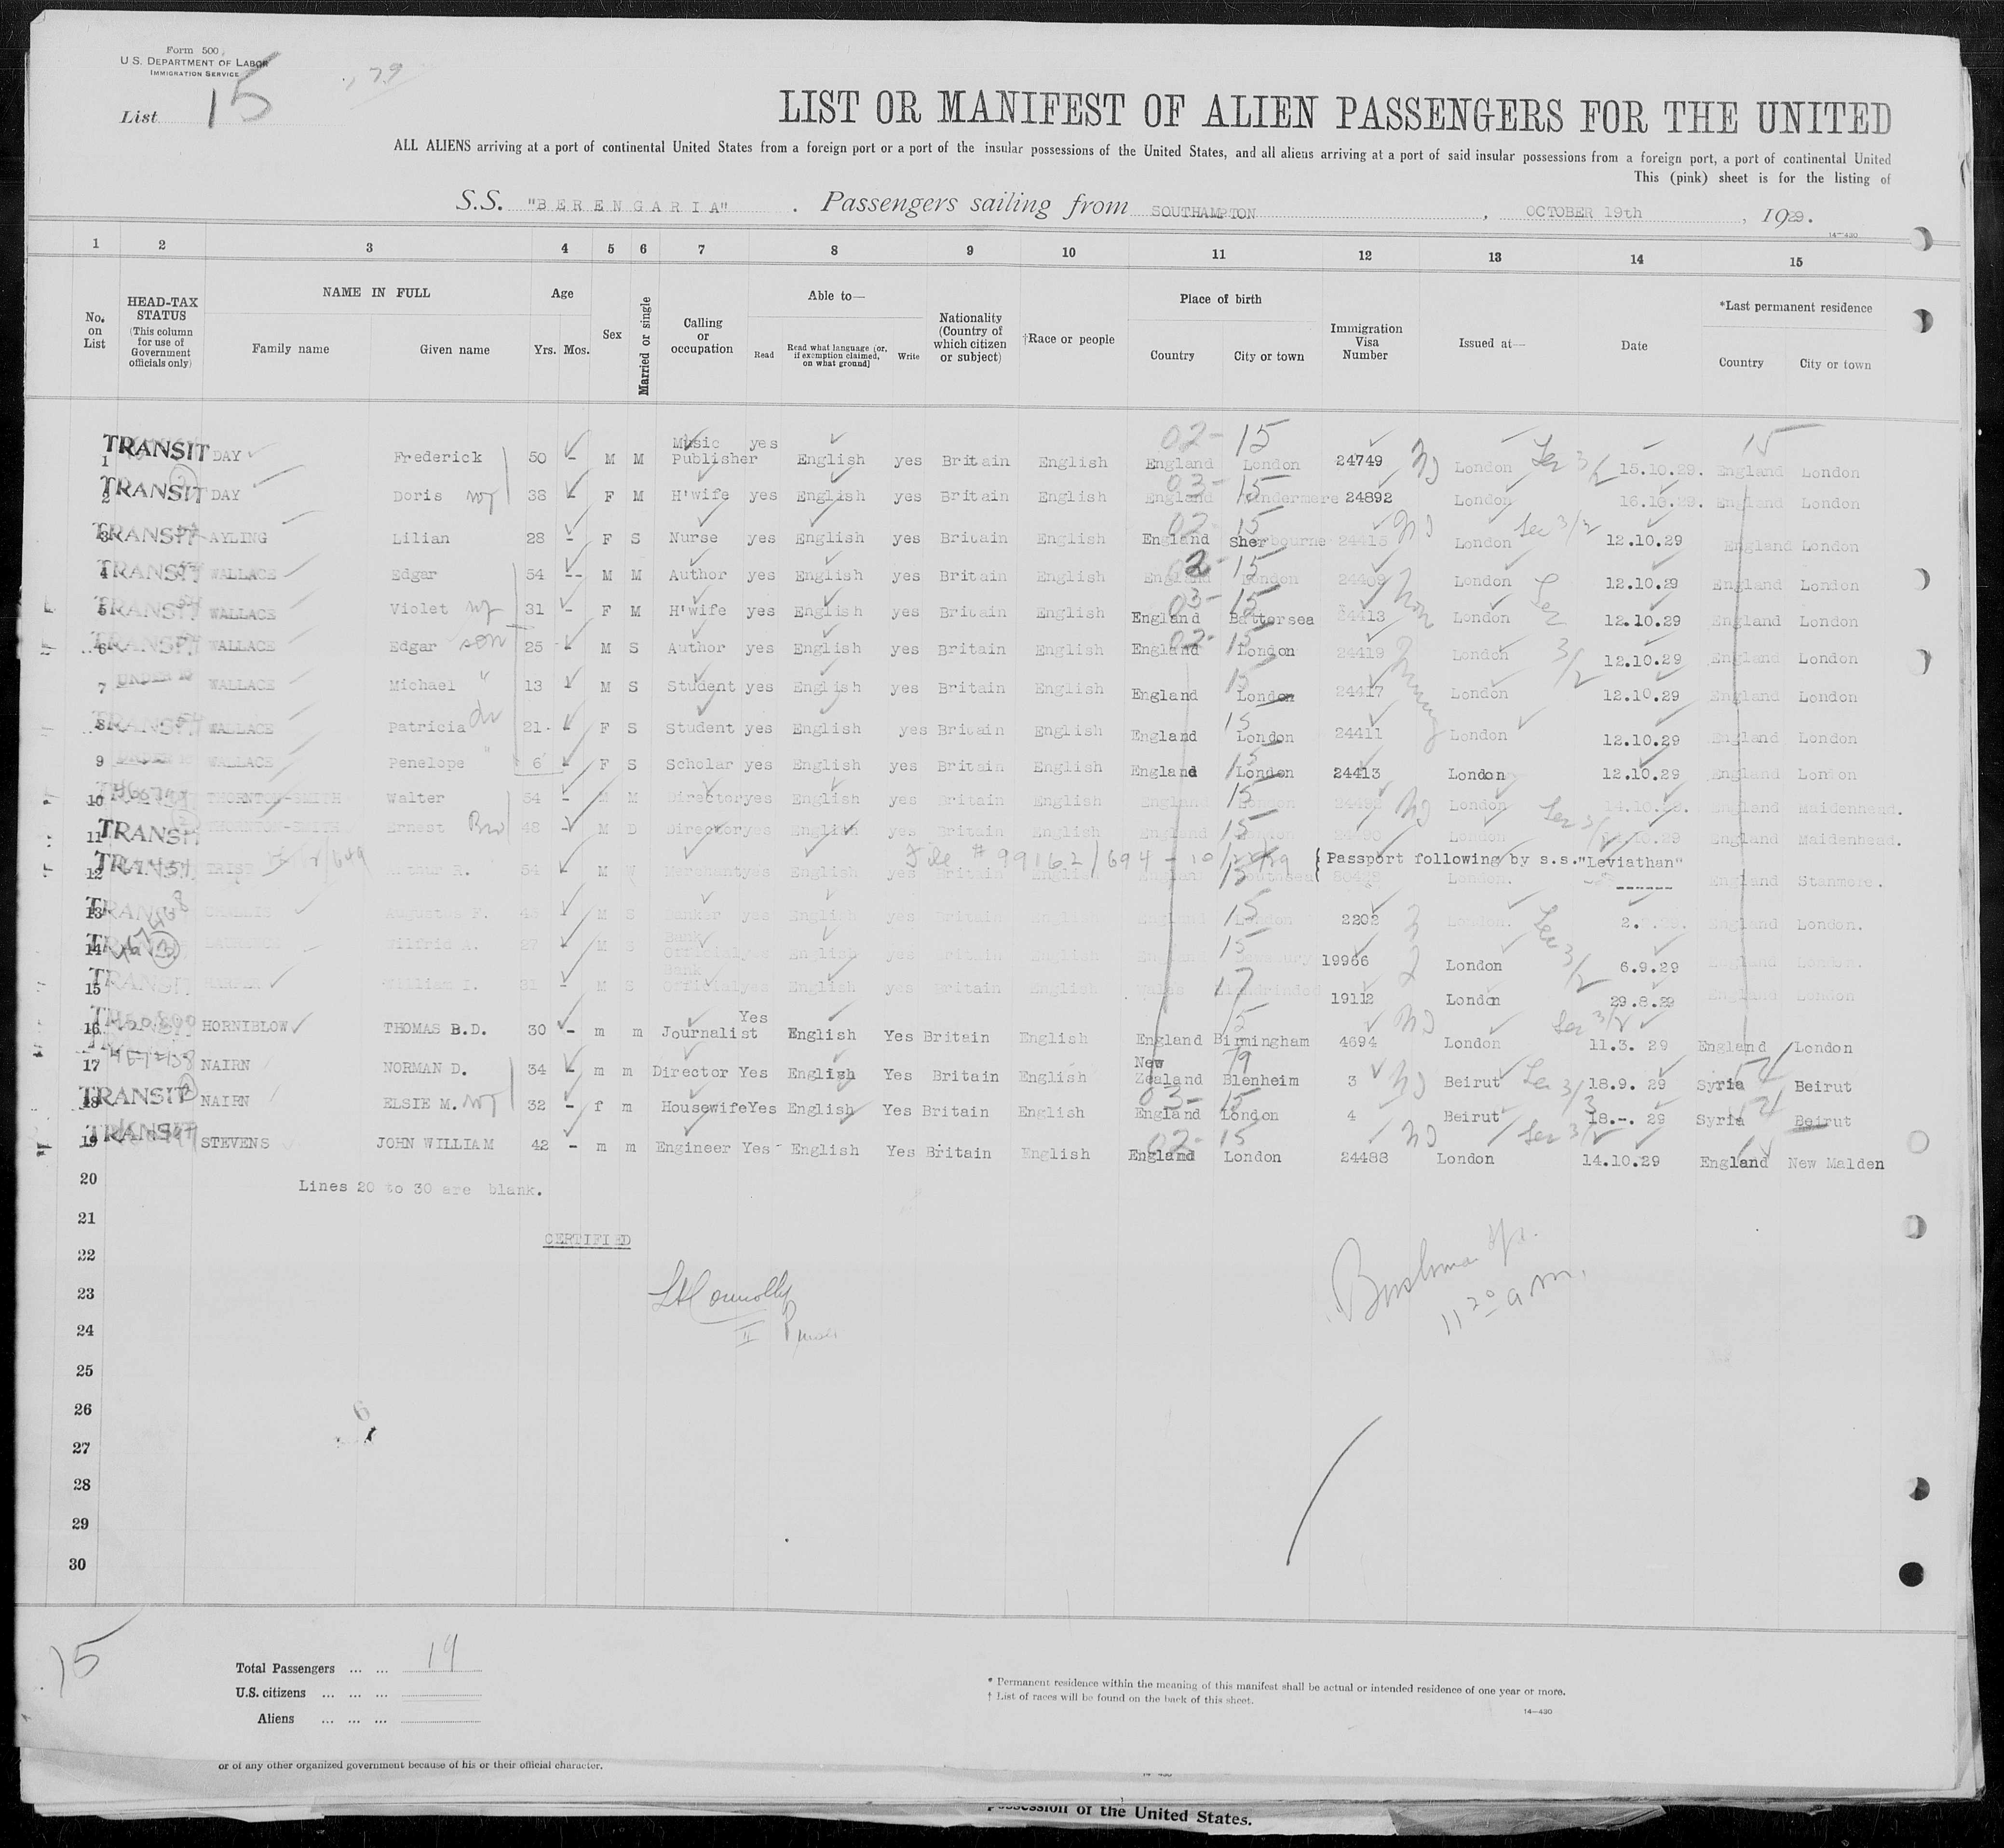 Form 500
U.S. DEPARTMENT OF LABOR
IMMIGRATION SERVICE
List 15
LIST OR MANIFEST OF ALIEN PASSENGERS FOR THE UNITED
ALL ALIENS arriving at a port of continental United States from a foreign port or a port of the insular possessions of the United States, and all aliens arriving at a port of said insular possessions from a foreign port, a port of continental United
This (pink) sheet is for the listing of
S.S. "BERENGARIA". Passengers sailing from SOUTHAMPTON, OCTOBER 19th, 1929.
14—430
1 2 3 4 5 6 7 8 9 10 11 12 13 14 15
No. on List
HEAD-TAX STATUS (This column for use of Government officials only)
NAME IN FULL
Family name Given name
Age
Yrs. Mos.
Sex
Married or single
Calling or occupation
Able to—
Read Read what language [or, if exemption claimed, on what ground] Write
Nationality (Country of which citizen or subject)
†Race or people
Place of birth
Country City or town
Immigration Visa Number
Issued at—
Date
*Last permanent residence
Country City or town
TRANSIT 1 DAY Frederick 50 - M M Music Publisher yes English yes Britain English England London 24749 London 15.10.29. England London
TRANSIT 2 DAY Doris 38 - F M H'wife yes English yes Britain English England 24892 London 16.10.29. England London
TRANSIT 3 AYLING Lilian 28 - F S Nurse yes English yes Britain English England Sherbourne 24415 London 12.10.29 England London
TRANSIT 4 WALLACE Edgar 54 -- M M Author yes English yes Britain English England London 24409 London 12.10.29 England London
TRANSIT 5 WALLACE Violet 31 - F M H'wife yes English yes Britain English England Battersea 24413 London 12.10.29 England London
TRANSIT 6 WALLACE Edgar son 25 - M S Author yes English yes Britain English England London 24419 London 12.10.29 England London
UNDER 7 WALLACE Michael " 13 M S Student yes English yes Britain English England London 24417 London 12.10.29 England London
TRANSIT 8 WALLACE Patricia 21 F S Student yes English yes Britain English England London 24411 London 12.10.29 England London
UNDER 9 WALLACE Penelope " 6 F S Scholar yes English yes Britain English England London 24413 London 12.10.29 England London
10 THORNTON-SMITH Walter 54 - M M Director yes English yes Britain English England London London 14.10.29. England Maidenhead.
TRANSIT 11 THORNTON-SMITH Ernest 48 - M D Director yes English yes Britain English England London London 10.29 England Maidenhead.
File # 99162/694 - 10/ /29 {Passport following by s.s."Leviathan"
TRANSIT 12 TRIST Arthur R. 54 M W Merchant yes English yes Britain English England Southsea London. ------ England Stanmore.
TRANSIT 13 Augustus F. M S Banker yes English yes Britain England London 2202 London. England London.
14 Wilfrid A. 27 M S Bank Official yes English yes Britain English England 19966 London 6.9.29 England London.
TRANSIT 15 HARPER William I. 31 - M S Bank Official yes English yes Britain English Wales 19112 London 29.8.29 England London
16 HORNIBLOW THOMAS B.D. 30 - m m Journalist Yes English Yes Britain English England Birmingham 4694 London 11.3. 29 England London
17 NAIRN NORMAN D. 34 - m m Director Yes English Yes Britain English New Zealand Blenheim 3 Beirut 18.9. 29 Syria Beirut
TRANSIT 18 NAIRN ELSIE M. 32 - f m Housewife Yes English Yes Britain English England London 4 Beirut 18.-. 29 Syria Beirut
TRANSIT 19 STEVENS JOHN WILLIAM 42 - m m Engineer Yes English Yes Britain English England London 24488 London 14.10.29 England New Malden
20 Lines 20 to 30 are blank.
21
22 CERTIFIED
23
24
25
26
27
28
29
30
11 20 am.
15
Total Passengers ... ... 19
U.S. citizens ... ... ...
Aliens ... ... ...
* Permanent residence within the meaning of this manifest shall be actual or intended residence of one year or more.
† List of races will be found on the back of this sheet.
14—430
or of any other organized government because of his or their official character.
possession of the United States.